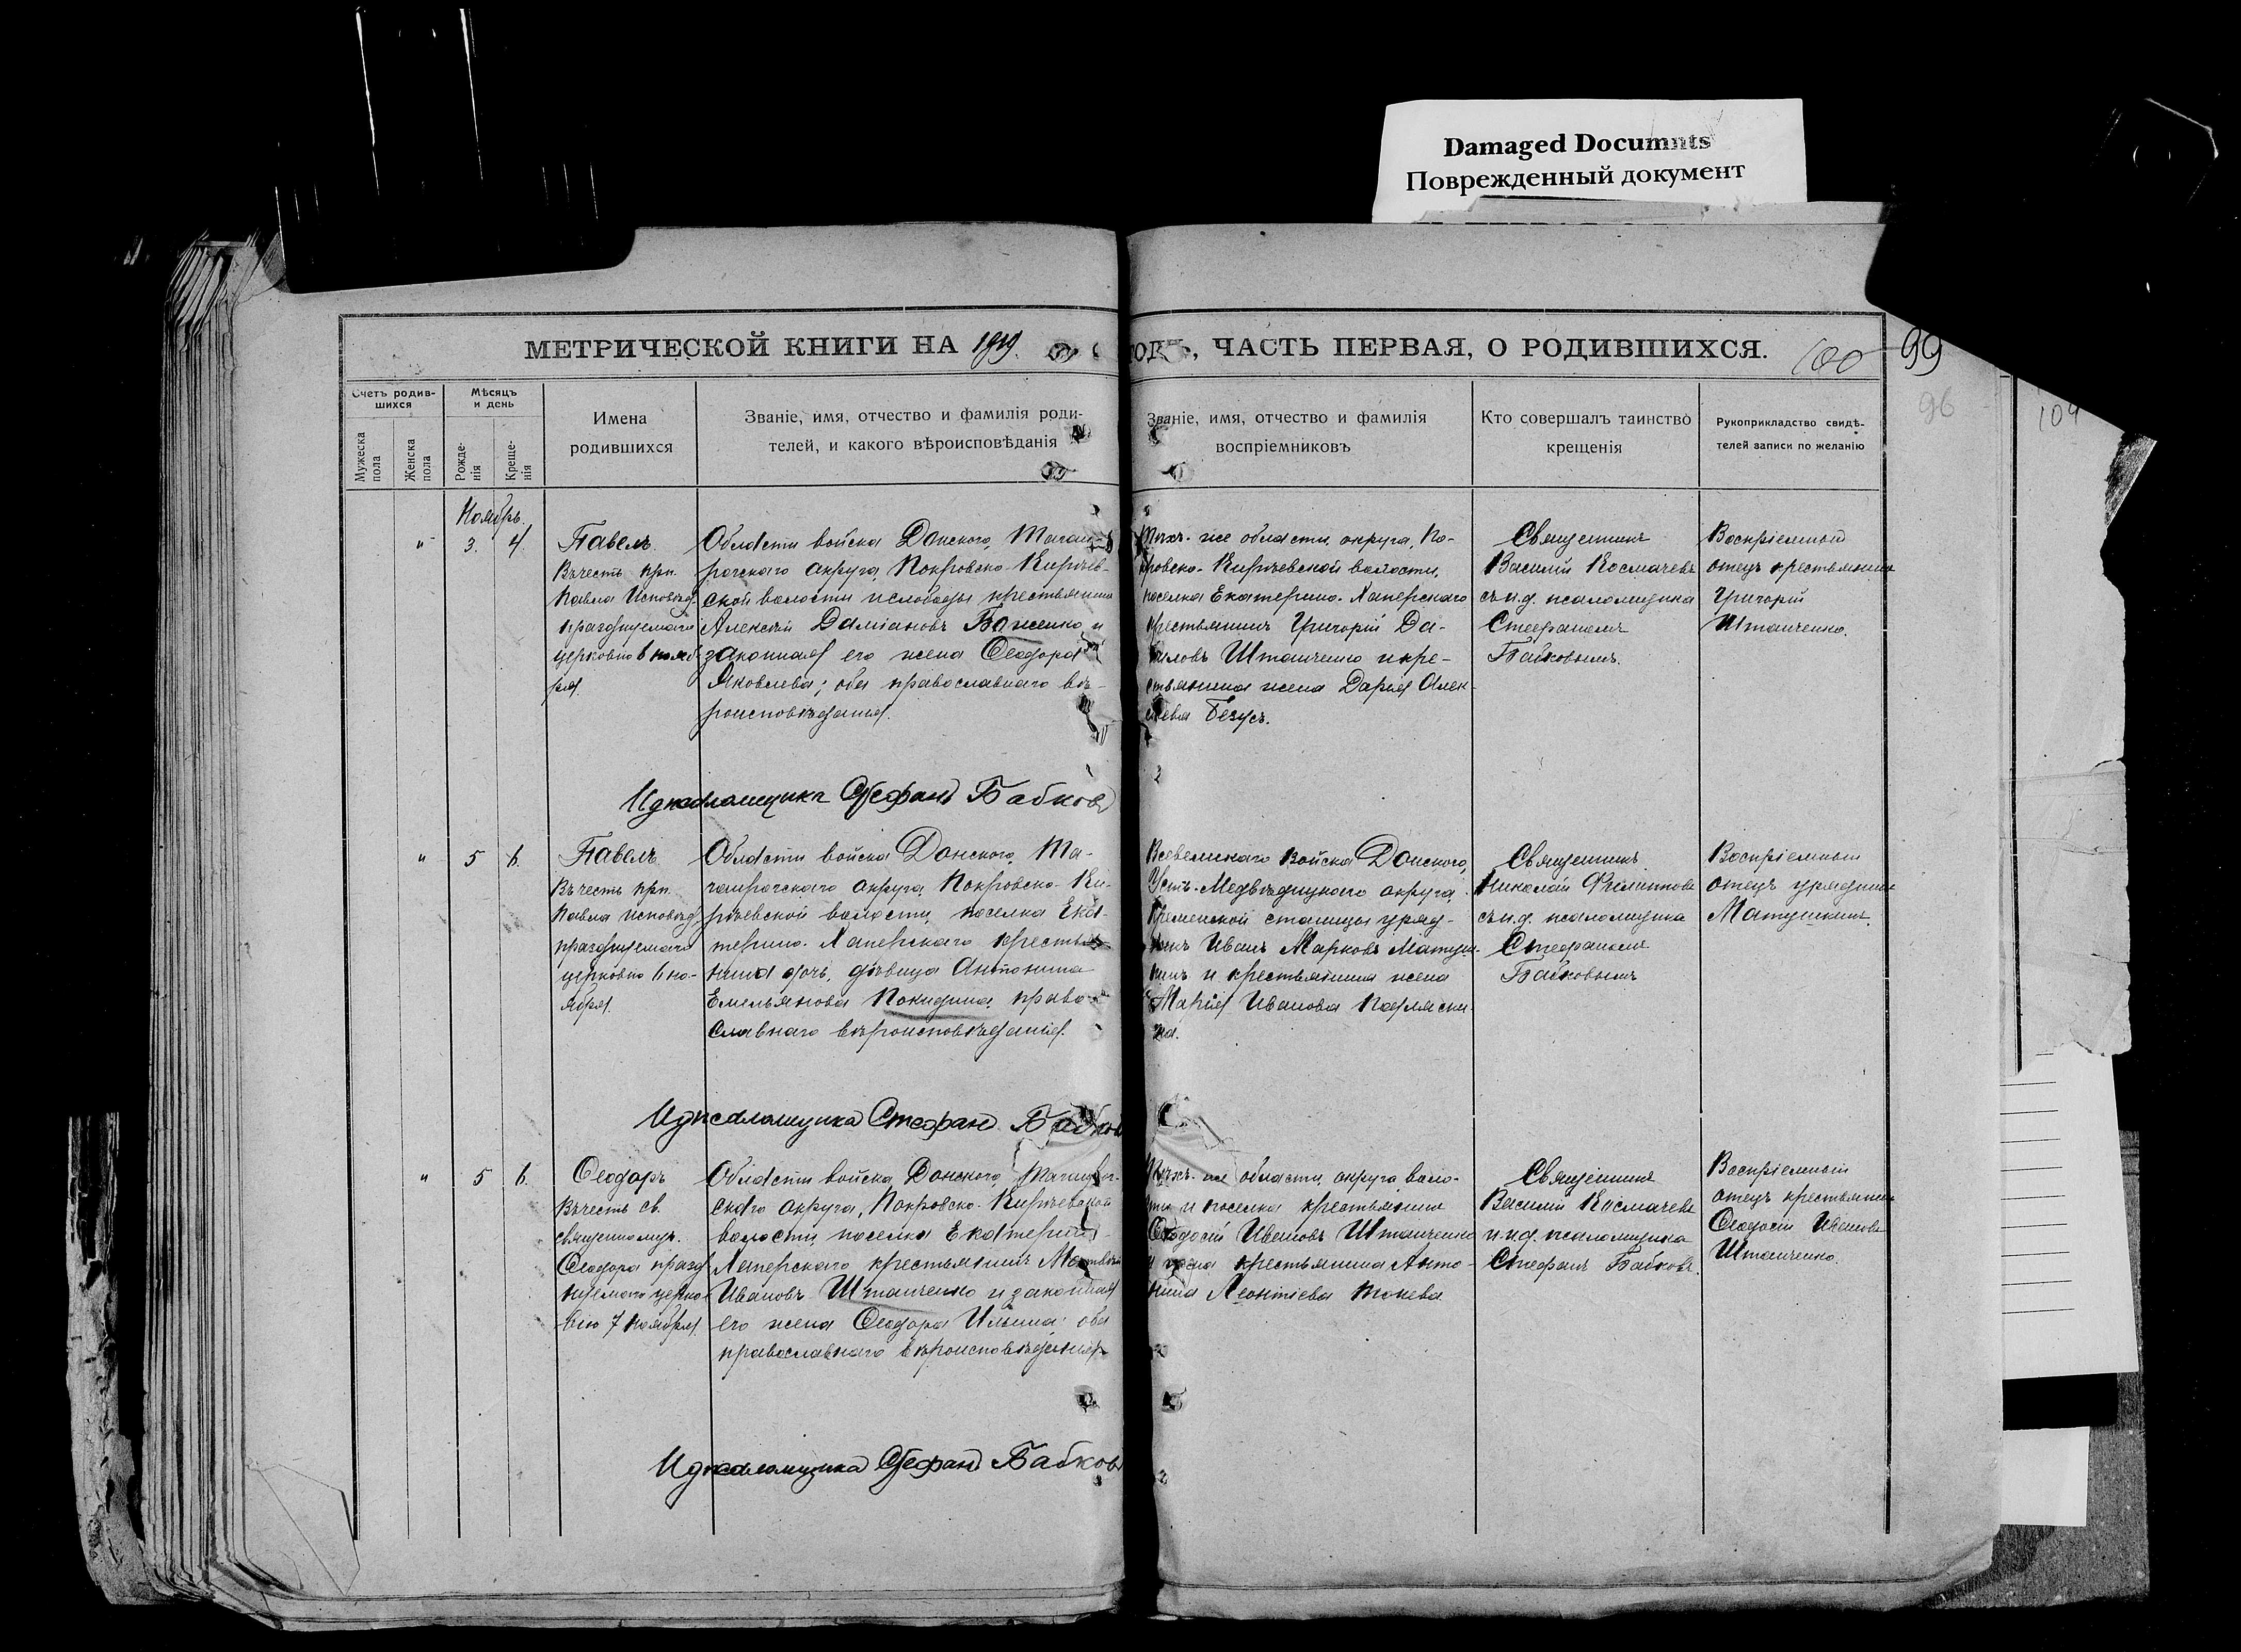 Damaged Documnts
Поврежденный документ
МЕТРИЧЕСКОЙ КНИГИ НА 1919
ГОДЪ, ЧАСТЬ ПЕРВАЯ, О РОДИВШИХСЯ.
100
99
96
104
Счетъ родив-
шихся
Мѣсяцъ
и день
Мужеска
пола
Женска
пола
Рожде-
нія
Креще-
нія
Имена
родившихся
Званіе, имя, отчество и фамилія роди-
телей, и какого вѣроисповѣданія
Званіе, имя, отчество и фамилія
воспріемниковъ
Кто совершалъ таинство
крещенія
Рукоприкладство свидѣ-
телей записи по желанію
Ноябрь.
" 3. 4.
Павелъ
Въ честь прп.
Павла Исповѣд.
празднуемаго
церковію 6 нояб-
ря.
Области войска Донского, Таган-
рогскаго округа, Покровско-Кирѣев-
ской волости и слободы крестьянинъ
Алексѣй Даміановъ Боженко и
законная его жена Ѳеодора
Яковлева; оба православнаго вѣ-
роисповѣданія.
Тѣхъ-же области, округа, По-
кровско-Кирѣевской волости,
поселка Екатерино-Хаперскаго
крестьянинъ Григорій Да-
ниловъ Штанченко и кре-
стьянина жена Дарія Алек-
сѣева Безусъ.
Священникъ
Василій Космачевъ
съ и.д. псаломщика
Стефаномъ
Бабковымъ.
Воспріемный
отецъ крестьянинъ
Григорій
Штанченко.
И д псаломщика Стефанъ Бабковъ
" 5 6.
Павелъ
Въ честь прп.
Павла Исповѣд.
празднуемаго
церковію 6 но-
ября.
Области войска Донского, Та-
ганрогскаго округа, Покровско-Ки-
рѣевской волости, поселка Ека-
терино-Хаперскаго крестья-
нина дочь, дѣвица Антонина
Емельянова Покидина, право-
славнаго вѣроисповѣданія.
Всевеликаго Войска Донского,
Усть-Медвѣдицкаго округа,
Кременской станицы уряд-
никъ Иванъ Марковъ Матуш-
кинъ и крестьянина жена
Марія Ивановна
Священникъ
Николай Филипповъ
съ и.д. псаломщика
Стефаномъ
Бабковымъ
Воспріемный
отецъ урядникъ
Матушкинъ.
И д псаломщика Стефанъ Бабковъ
" 5 6.
Ѳеодоръ
Въ честь св.
священномуч.
Ѳеодора празд-
нуемаго церко-
вію 7 ноября.
Области войска Донского, Таганрог-
скаго округа, Покровско-Кирѣевской
волости, поселка Екатерино-
Хаперскаго крестьянинъ Матвѣй
Ивановъ Штанченко и законная
его жена Ѳеодора Ильина; оба
православнаго вѣроисповѣданія
Тѣхъ-же области, округа, воло-
сти и поселка крестьянинъ
Ѳеодосій Ивановъ Штанченко
и жена крестьянина Анто-
нина Леонтіева
Священникъ
Василій Космачевъ
и.д. псаломщика
Стефанъ Бабковъ.
Воспріемный
отецъ крестьянинъ
Ѳеодосій Ивановъ
Штанченко.
И д псаломщика Стефанъ Бабковъ